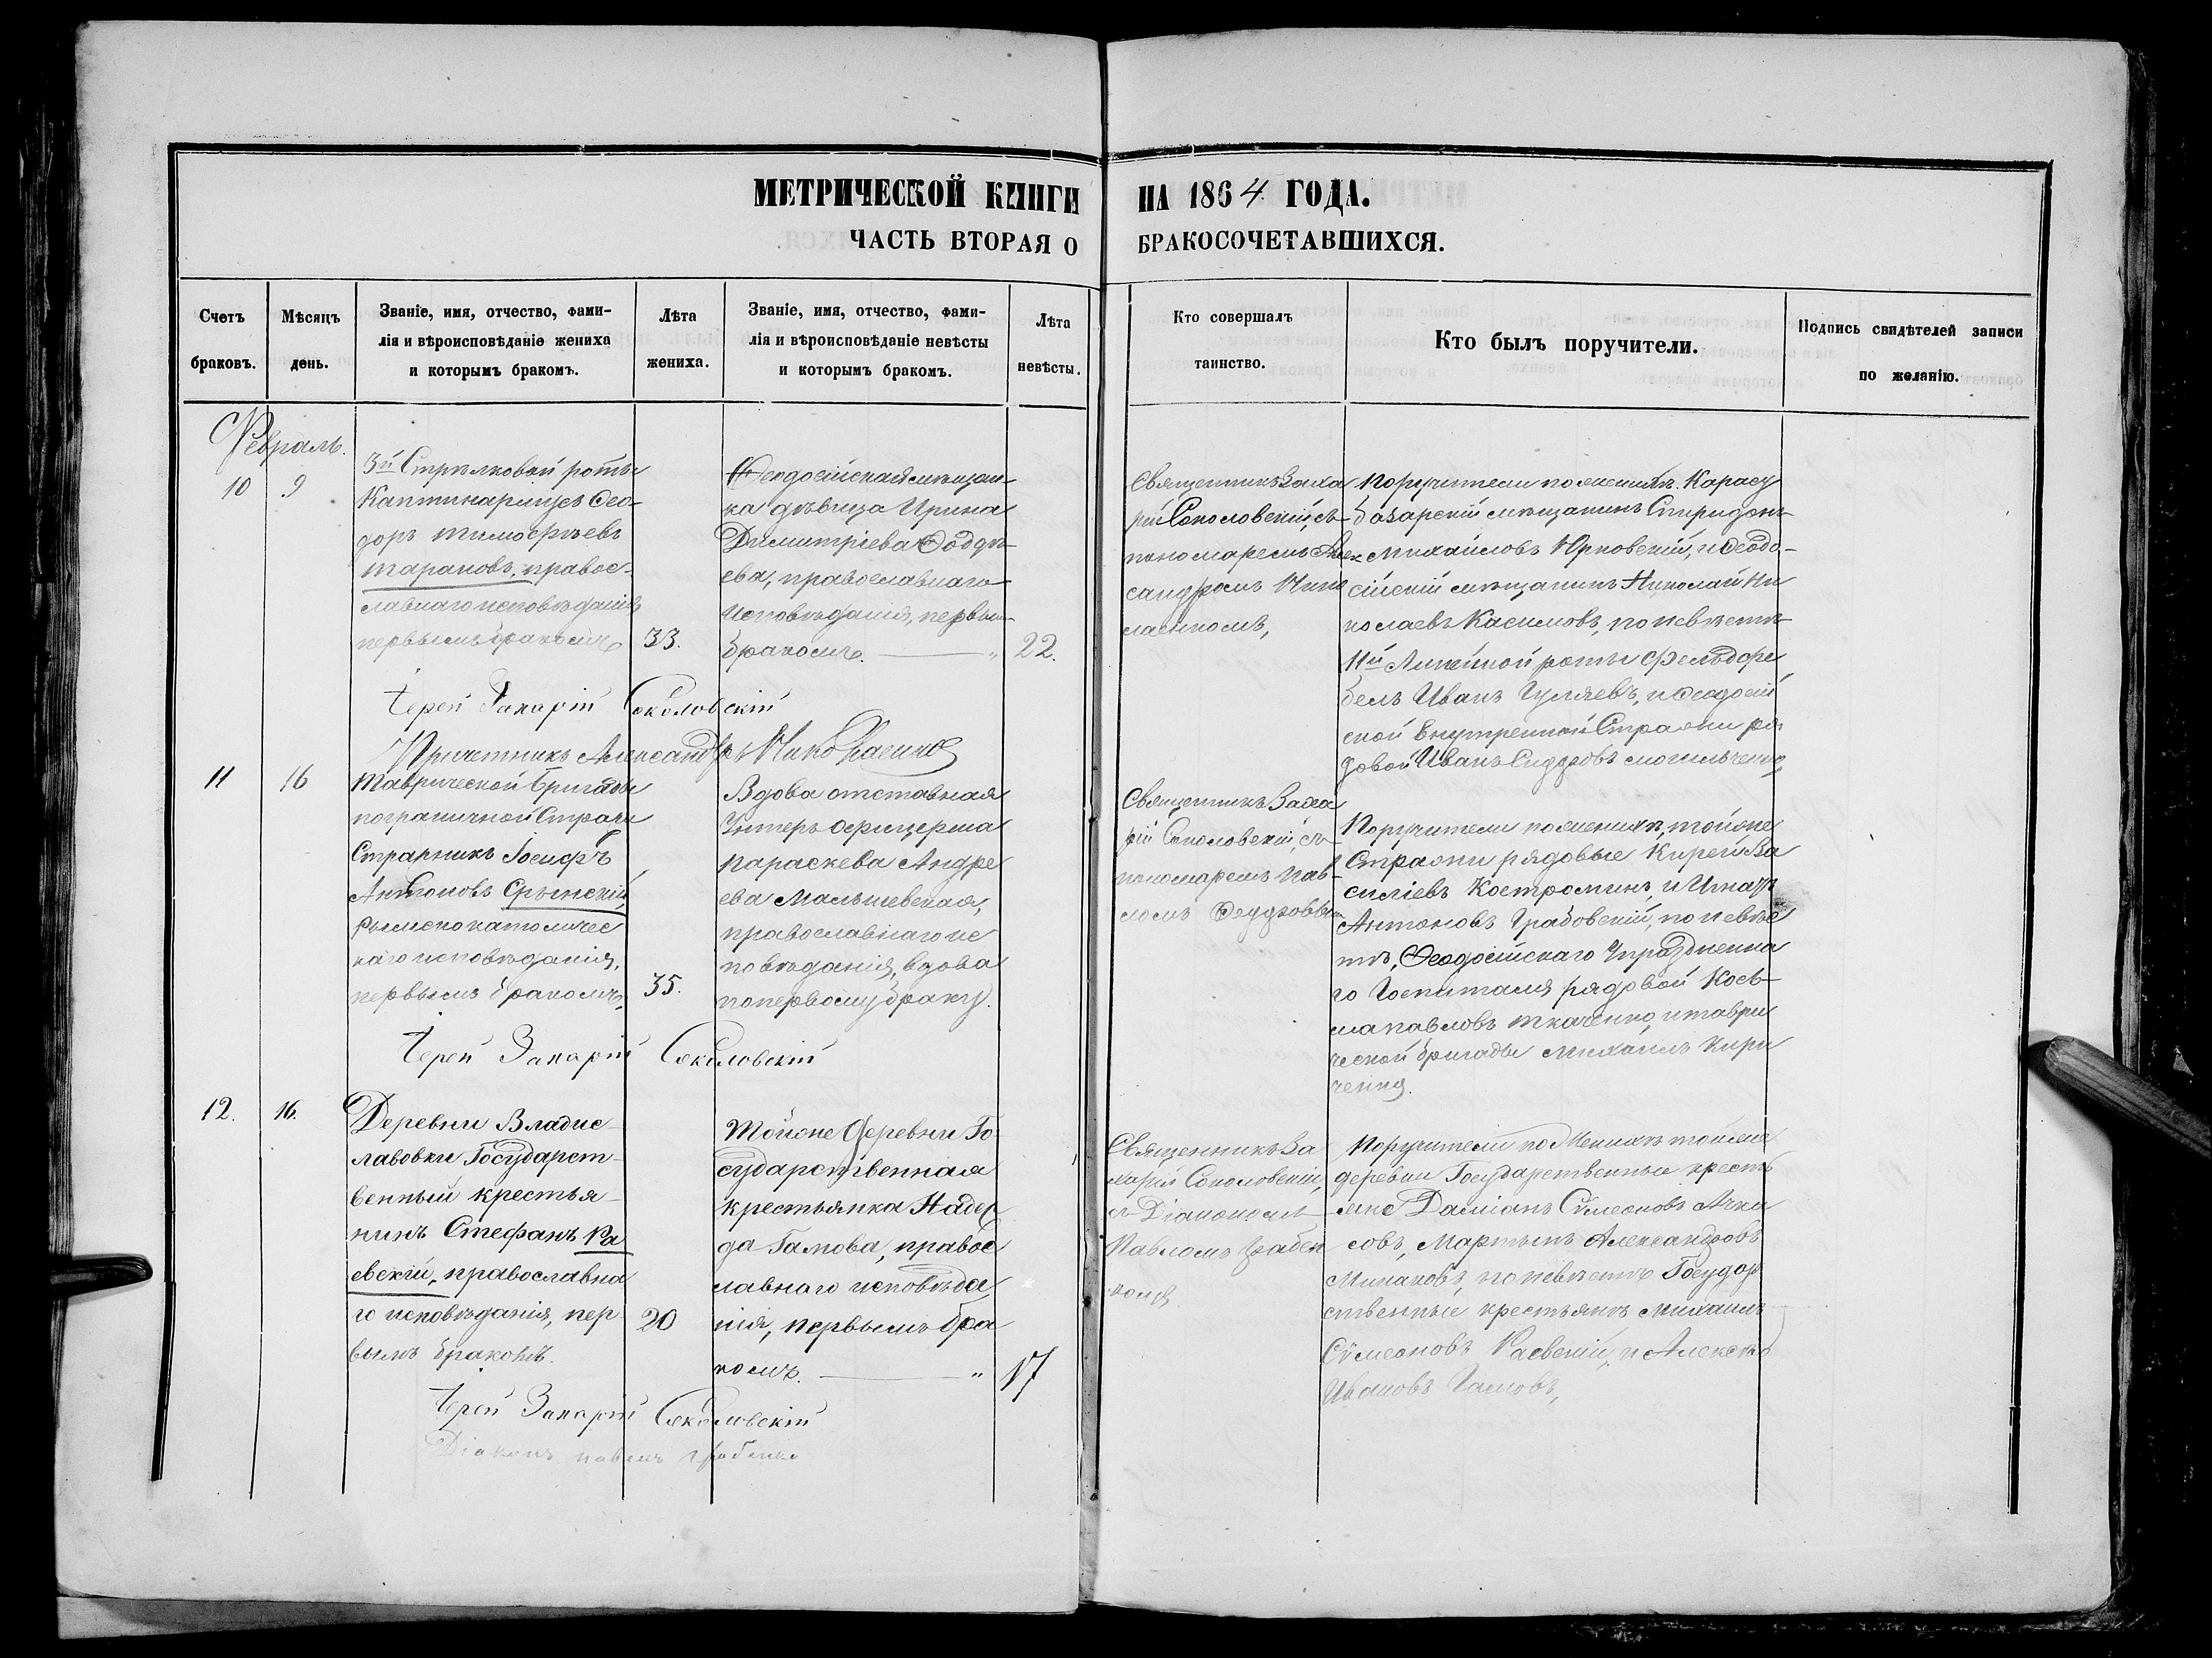 МЕТРИЧЕСКОЙ КНИГИ НА 1864 ГОДА.
ЧАСТЬ ВТОРАЯ О БРАКОСОЧЕТАВШИХСЯ.
Счетъ
браковъ.
Мѣсяцъ
день.
Званіе, имя, отчество, фами-
лія и вѣроисповѣданіе жениха
и которымъ бракомъ.
Лѣта
жениха.
Званіе, имя, отчество, фами-
лія и вѣроисповѣданіе невѣсты
и которымъ бракомъ.
Лѣта
невѣсты.
Кто совершалъ
таинство.
Кто былъ поручители.
Подпись свидѣтелей записи
по желанію.
Февраль.
10
9
3й Стрѣлковой роты
Каптинармусъ Ѳео-
доръ Тимофѣевъ
Тарановъ, правос-
лавнаго исповѣданія
первымъ бракомъ
33.
Ѳеодосійская мѣщан-
ка дѣвица Ирина
Димитріева
ева, православнаго
исповѣданія, первым
бракомъ. — "
22.
Священникъ Заха
рій Соколовскій, съ
пономаремъ Алек
сандромъ Нико
лаенкомъ,
Поручители по женихѣ. Карасу
базарскій мѣщанинъ Спиридонъ
Михайловъ Юрковскій, и Ѳеодо-
сійскій мѣщанинъ Николай Ни
колаевъ Касимовъ, по невѣстѣ
11й Линейной роты Фельдфе
бель Иванъ Гуляевъ, и Ѳеодосій
ской Внутренней Стражи ря
довой Иванъ
Іерей Захарій Соколовскій
Причетникъ Александръ Николаенко
11
16
Таврической Бригады
пограничной Стражи
Стражникъ Іосифъ
Антоновъ
Римско католичес
каго исповѣданія,
первымъ бракомъ,
35.
Вдова отставная
Унтеръ Офицерша
Параскева Андре
ева Малышевская,
православнаго ис
повѣданія, вдова
по первому браку.
Священникъ Заха
рій Соколовскій, съ
пономаремъ Пав-
ломъ
Поручители по женихѣ, той же
Стражи рядовые Кирей Ва
силіевъ Костроминъ, и Игнатъ
Антоновъ Грабовскій, по невѣс
тѣ, Ѳеодосійскаго Упраздненна
го Госпиталя рядовой Кось-
ма Павловъ Ткаченко, и Таври
ческой бригады Михаилъ Кири
ченко.
Іерей Захарій Соколовскій
12.
16.
Деревни Владис-
лавовки Государст-
венный крестья-
нинъ Стефанъ Ра
евскій, православна
го исповѣданія, пер
вымъ бракомъ.
20
Той же Деревни Го
сударственная
крестьянка Надеж
да Гамова, правос
лавнаго исповѣда
нія, первымъ бра
комъ. — "
17
Священникъ За
харій Соколовскій,
съ Діакономъ
Павломъ Грабен
комъ
Поручители по Женихѣ той же
деревни Государственные кресть
яне Даміанъ Сѵмеоновъ Ачка
совъ, Мартынъ Александровъ
Минаковъ, по невѣстѣ Государ
ственные крестьянъ Михаилъ
Сѵмеоновъ Раевскій, и Алексѣй
Ивановъ Гамовъ,
Іерей Захарій Соколовскій
Діаконъ Павелъ Грабенко